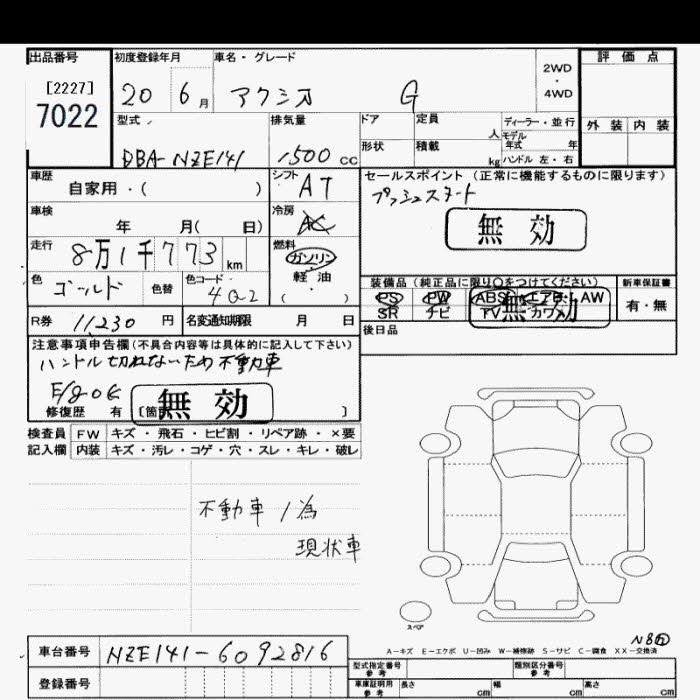 出品番号 初度登録年月 車名・グレード 評価点
[2227] 2WD・4WD
7022 20 6月 アクシオ G
型式 排気量 ドア 定員 人 ディーラー・並行 外装 内装
モデル年式 年
DBA-NZE141 1500 cc 形状 積載 kg ハンドル 左・右
車歴 シフト セールスポイント (正常に機能するものに限ります)
自家用・( ) AT プッシュスタート
車検 冷房 無効
年 月( 日) AC
走行 燃料
8万1千773km ガソリン
軽油
( ・ )
色 色替 色コード 装備品 (純正品に限り○をつけてください) 新車保証書
ゴールド 4Q2 PS PW ABS エアB AW 有・無
SR ナビ TV カワ 無効
R券 11230円 名変通知期限 月 日 後日品
注意事項申告欄(不具合内容等は具体的に記入して下さい)
ハンドル切れないため不動車
E/g OK
修復歴 有 [箇所 ] 無効
検査員 FW キズ・飛石・ヒビ割・リペア跡・×要
記入欄 内装 キズ・汚レ・コゲ・穴・スレ・キレ・破レ
不動車ノ為
現状車
スペア
A-キズ E-エクボ U-凹み W-補修跡 S-サビ C-腐食 XX-交換済
車台番号 NZE141-6092816
型式指定番号 参考 類別区分番号 参考
登録番号 車庫証明用 参考 長さ cm 幅 cm 高さ cm